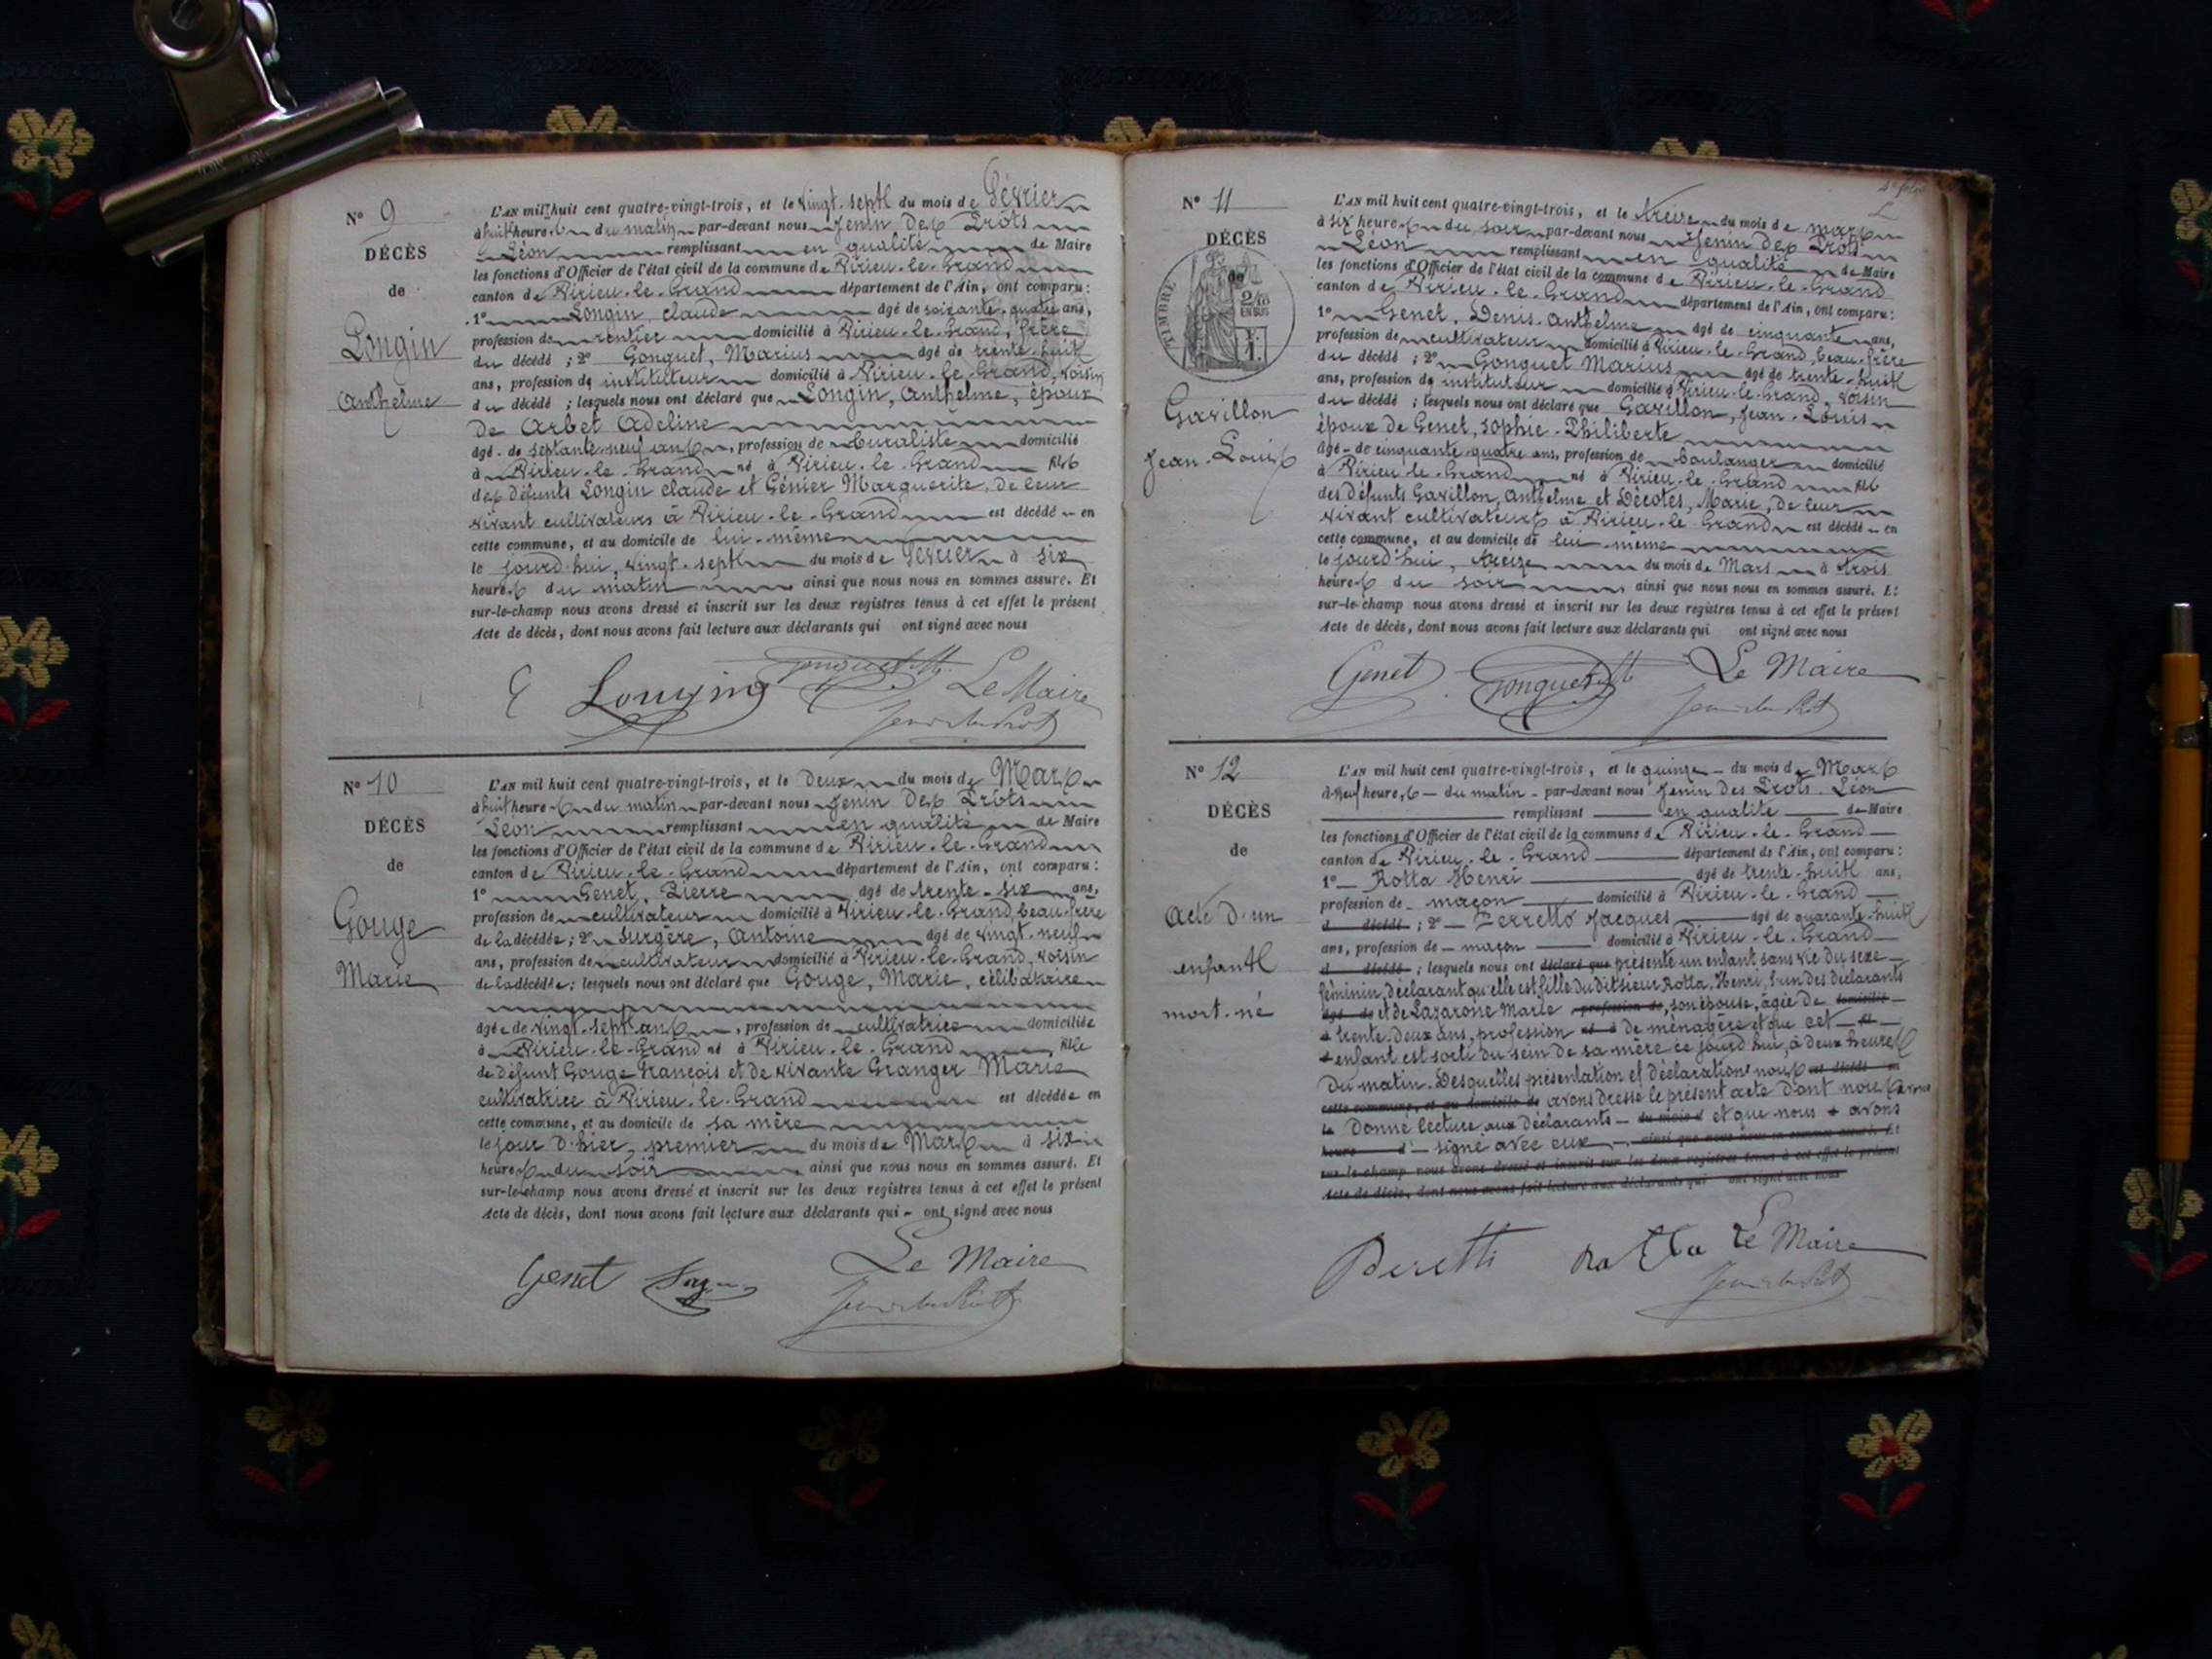 N° 9
DÉCÈS
de
Longin
Anthelme
L'AN mil huit cent quatre-vingt-trois, et le vingt-sept du mois de Février
à huit heures du matin par-devant nous Jenin Des Prôts
Léon remplissant en qualité de Maire
les fonctions d'Officier de l'état civil de la commune de Virieu-le-Grand
canton de Virieu-le-Grand département de l'Ain, ont comparu :
1° Longin, Claude âgé de soixante-quatre ans,
profession de rentier domicilié à Virieu-le-Grand, frère
du décédé ; 2° Gonguet, Marius âgé de trente-huit
ans, profession de instituteur domicilié à Virieu-le-Grand, voisin
du décédé ; lesquels nous ont déclaré que Longin, Anthelme, époux
de Arbet Adeline
âgé de septante-neuf ans, profession de buraliste domicilié
à Virieu-le-Grand né à Virieu-le-Grand fils
des défunts Longin Claude et Génier Marguerite, de leur
vivant cultivateurs à Virieu-le-Grand est décédé en
cette commune, et au domicile de lui-même
le jourd'hui, vingt-sept du mois de Février à six
heures du matin ainsi que nous nous en sommes assuré. Et
sur-le-champ nous avons dressé et inscrit sur les deux registres tenus à cet effet le présent
Acte de décès, dont nous avons fait lecture aux déclarants qui ont signé avec nous
Longin Gonguet M. Le Maire
Jenin des Prôts
N° 10
DÉCÈS
de
Gouge
Marie
L'AN mil huit cent quatre-vingt-trois, et le deux du mois de Mars
à huit heures du matin par-devant nous Jenin Des Prôts
Léon remplissant en qualité de Maire
les fonctions d'Officier de l'état civil de la commune de Virieu-le-Grand
canton de Virieu-le-Grand département de l'Ain, ont comparu :
1° Genet, Pierre âgé de trente-six ans,
profession de cultivateur domicilié à Virieu-le-Grand, beau-frère
de la décédée ; 2° Surgère, Antoine âgé de vingt-neuf
ans, profession de cultivateur domicilié à Virieu-le-Grand, voisin
de la décédée ; lesquels nous ont déclaré que Gouge, Marie, célibataire
âgée de vingt-sept ans, profession de cultivatrice domiciliée
à Virieu-le-Grand né à Virieu-le-Grand, fille
de défunt Gouge François et de vivante Granger Marie
cultivatrice à Virieu-le-Grand est décédée en
cette commune, et au domicile de sa mère
le jour d'hier, premier du mois de Mars à six
heures du soir ainsi que nous nous en sommes assuré. Et
sur-le-champ nous avons dressé et inscrit sur les deux registres tenus à cet effet le présent
Acte de décès, dont nous avons fait lecture aux déclarants qui ont signé avec nous
Genet Le Maire
Jenin des Prôts
N° 11
DÉCÈS
de
TIMBRE
2/10
EN SUS
Gavillon
Jean-Louis
L'AN mil huit cent quatre-vingt-trois, et le treize du mois de mars
à six heures du soir par-devant nous Jenin des Prôts
Léon remplissant en qualité de Maire
les fonctions d'Officier de l'état civil de la commune de Virieu-le-Grand
canton de Virieu-le-Grand département de l'Ain, ont comparu :
1° Genet, Denis-Anthelme âgé de cinquante ans,
profession de cultivateur domicilié à Virieu-le-Grand, beau-frère
du décédé ; 2° Gonguet Marius âgé de trente-huit
ans, profession de instituteur domicilié à Virieu-le-Grand, voisin
du décédé ; lesquels nous ont déclaré que Gavillon, Jean-Louis
époux de Genet, Sophie-Philiberte
âgé de cinquante-quatre ans, profession de boulanger domicilié
à Virieu-le-Grand né à Virieu-le-Grand fils
des défunts Gavillon, Anthelme et Décotes, Marie, de leur
vivant cultivateurs à Virieu-le-Grand est décédé en
cette commune, et au domicile de lui-même
le jourd'hui, treize du mois de Mars à trois
heures du soir ainsi que nous nous en sommes assuré. Et
sur-le-champ nous avons dressé et inscrit sur les deux registres tenus à cet effet le présent
Acte de décès, dont nous avons fait lecture aux déclarants qui ont signé avec nous
Genet Gonguet M Le Maire
Jenin des Prôts
N° 12
DÉCÈS
de
Acte d'un
enfant
mort-né
L'AN mil huit cent quatre-vingt-trois, et le quinze du mois de Mars
à neuf heures du matin par-devant nous Jenin des Prôts Léon
remplissant en qualité de Maire
les fonctions d'Officier de l'état civil de la commune de Virieu-le-Grand
canton de Virieu-le-Grand département de l'Ain, ont comparu :
1° Rotta Henri âgé de trente-huit ans,
profession de maçon domicilié à Virieu-le-Grand
d décédé ; 2° Perretto Jacques âgé de quarante-huit
ans, profession de maçon domicilié à Virieu-le-Grand
d décédé ; lesquels nous ont déclaré que présenté un enfant sans vie du sexe
féminin, déclarant qu'elle est fille du dit sieur Rotta, Henri, l'un des déclarants
âgé de et de Lazarone Marie profession de, son épouse, âgée de domicilié
à trente-deux ans, profession né à de ménagère et que cet fil
enfant est sorti du sein de sa mère ce jourd'hui, à deux heures
du matin. Desquelles présentation et déclaration nous est décédé en
cette commune, et au domicile de avons dressé le présent acte dont nous avons
le donné lecture aux déclarants du mois d et que nous à avons
heure d signé avec eux ainsi que nous nous en sommes assuré. Et
sur-le-champ nous avons dressé et inscrit sur les deux registres tenus à cet effet le présent
Acte de décès, dont nous avons fait lecture aux déclarants qui ont signé avec nous
Peretti Rotta Le Maire
Jenin des Prôts